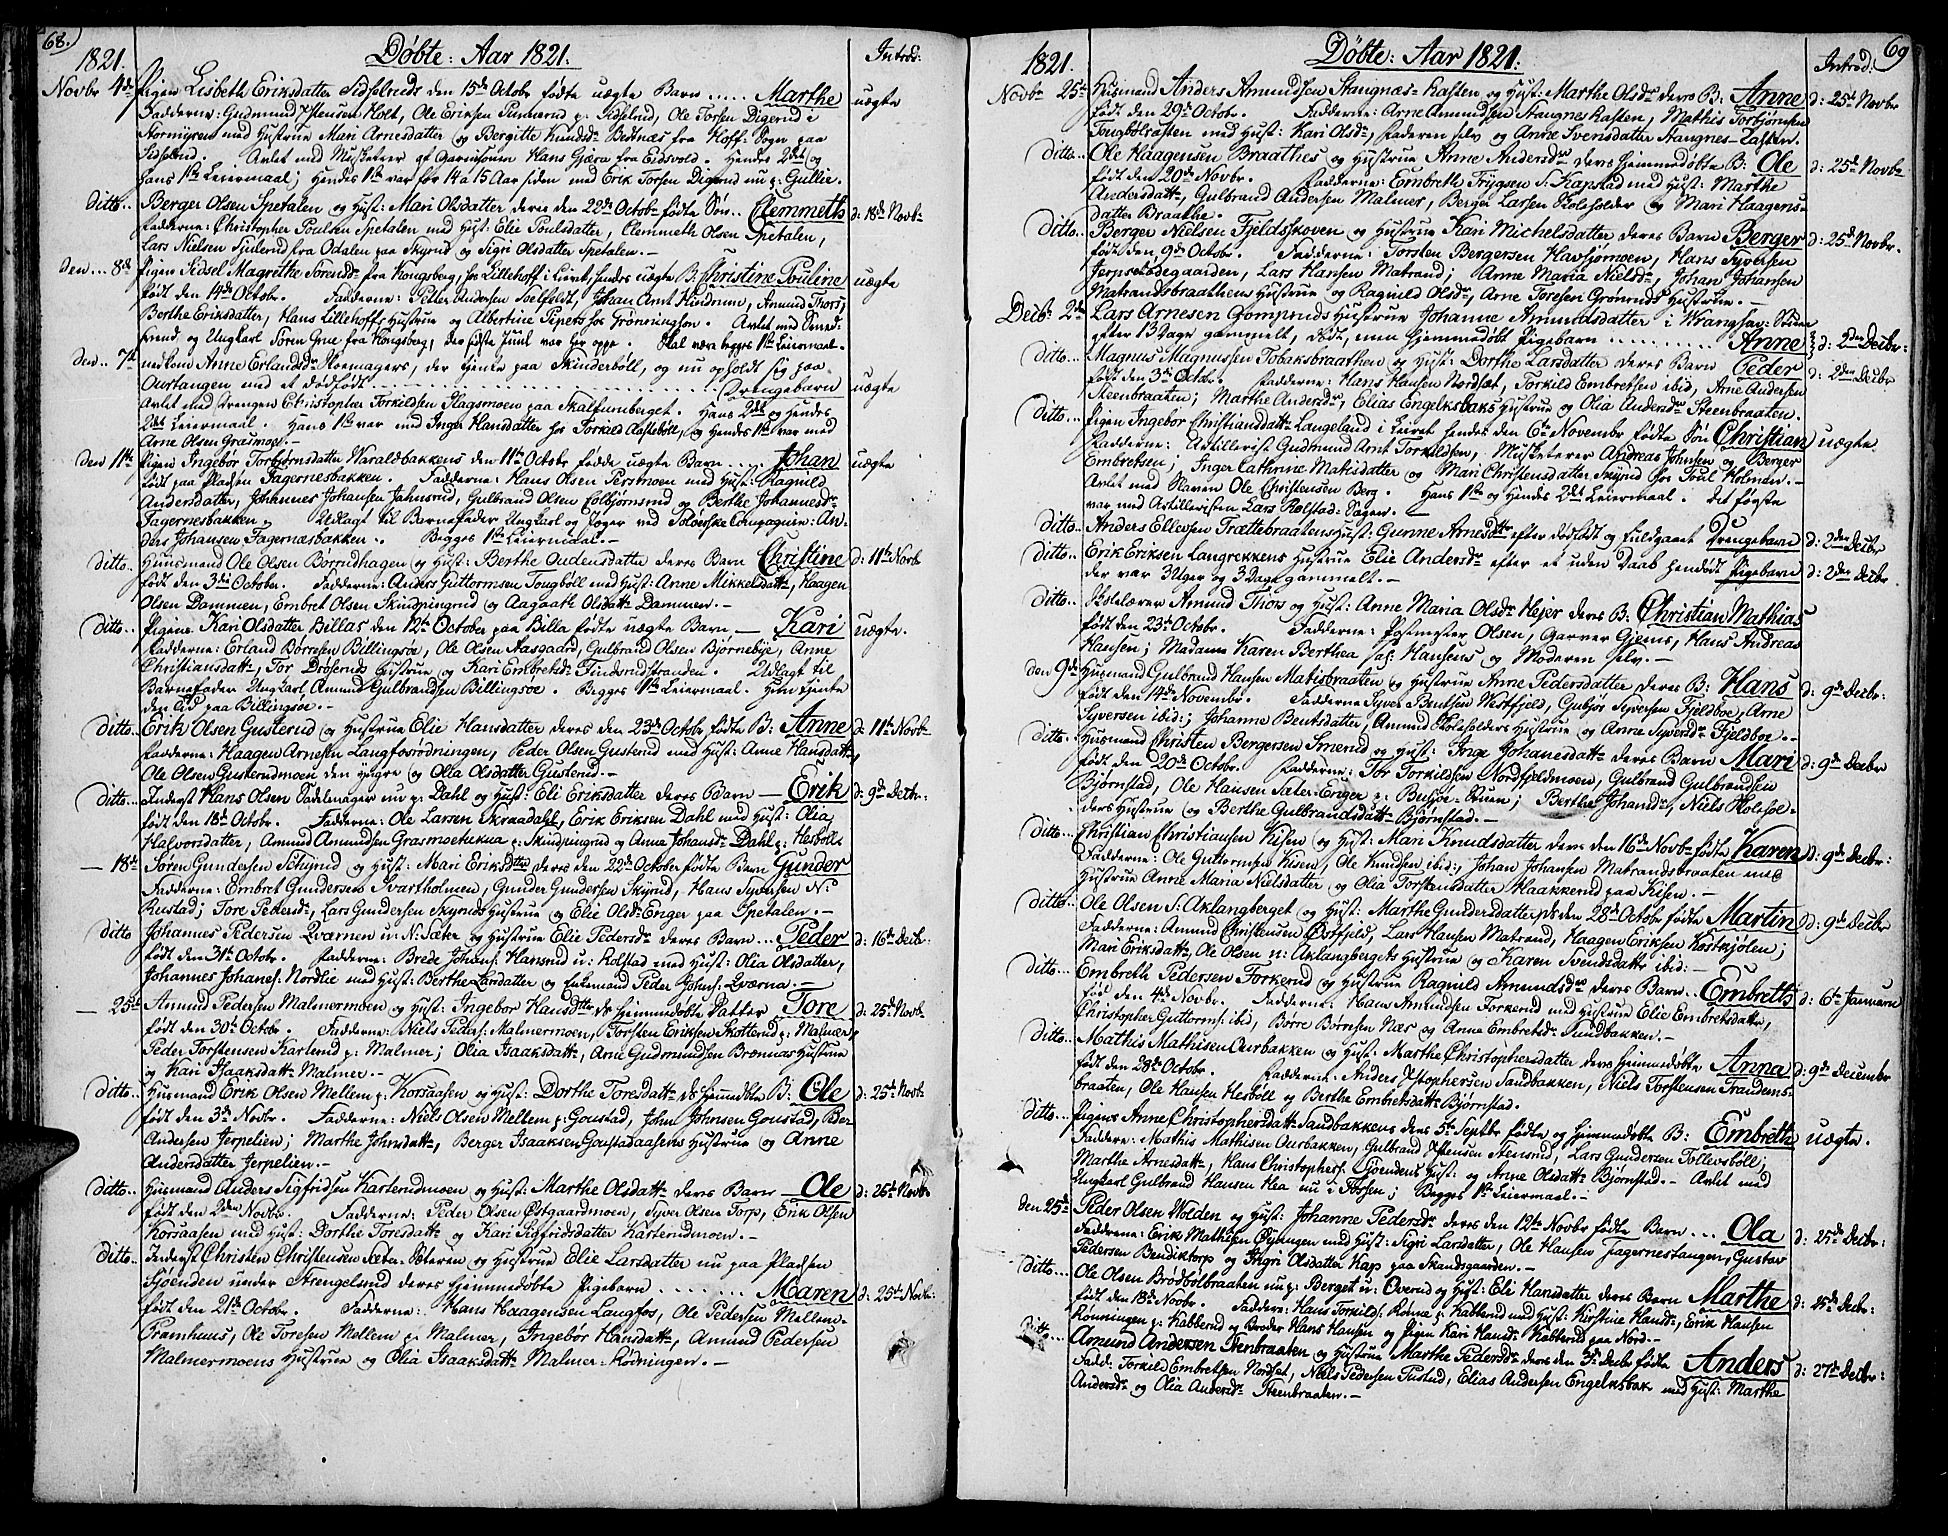 68.)
1821.
Döbte: Aar 1821.
Introd:
Novbr 4de Pigen Lisbeth Eriksdatter Sidselruds den 15de Octobr födte uægte Barn ..... Marthe uægte
Fadderne: Gudmund Holt, Ole Eriksen p: Sidselrud, Ole Torsen Digerud i
Stormyren med Hustrue Mari Arnesdatter og Bergitte Knudsdr fra Hoff-Sogn paa
Sidselrud. Avlet med Musketeer af Garnisonen Hans Gjæra fra Eidsvold. Hendes 2det og
hans 1ste Leiermaal; Hendes 1ste var for 14 a 15 Aar siden med Erik Torsen Digerud nu p: Gullie.
ditto.. Berger Olsen Spetalen og Hust: Mari Olsdatter deres den 22de Octobr födte Sön.. Clemmeth d: 18de Novbr
Fadderne: Christopher Poulsen Spetalen med Hust: Elie Poulsdatter, Clemmeth Olsen Spetalen,
Lars Nielsen fra Odalen paa Skyrud og Sigri Olsdatter Spetalen.—
den... 8de Pigen Sidsel Magrethe Sorensdr fra Kongsberg, hos Lillehoff i Leiret, hendes uægte B: Christine Pouline uægte
födt den 14de Octobr. Fadderne: Peter Andersen, Johan Arnt, Amund Thors;
Berthe Eriksdatter, Hans Lillehoffs Hustrue og Albertine hos Grönningsen. Avlet med Smed-
svend og Ungkarl Sören fra Kongsberg, der sidste Juul var her oppe. Skal være begges 1ste Leiermaal.
den.. 7de Anne Erlandsdr, der tjente paa Skinderböll, og nu opholdt sig paa
Ourtangen med et dödfödt .......... Drengebarn uægte
Avlet med drengen Christopher Torkildsen Flagsmoen paa Skalfurnberget. Hans 2det og Hendes
2det Leiermaal. Hans 1ste var med Inger Hansdatter hos Torkild, og Hendes 1ste var med
Arne Olsen Grasmoe.—
den 11te Pigen Ingebor Torbjörnsdatter Varaldbakkens den 11te Octobr födde uægte Barn .... Johan uægte
födt paa Pladsen Fagernesbakken. Fadderne: Hans Olsen Persmoen med Hust: Ragnild
Andersdatter, Johannes Johansen Jahnsrud, Gulbrand Olsen Colbjörnsrud og Berthe Johannesdr
Fagernesbakken. Udlagt til Barnefader Ungkarl og Jæger ved Solöerske Compagnie: An-
ders Johansen Fagernæsbakken. Begges 1ste Leiermaal.—
ditto. Huusmand Ole Olsen Börrudhagen og Hust: Berthe Audensdatter deres Barn Christine d: 11te Novb
födt den 3de Octobr. Fadderne: Anders Guttormsen Tougböll med Hust: Anne Mikkelsdatt, Haagen
Olsen Dammen, Embret Olsen Skindpungrud og Aagaath Olsdatt Dammen.—
ditto.. Pigens Kari Olsdatter Billas den 12te October paa Billa födte uægte Barn — Kari uægte.
Fadderne: Erland Börresen Billingsöe, Ole Olsen Aasgaard, Gulbrand Olsen Björnebye, Anne
Christiansdatt, Tor Dröseruds Hustrue og Kari Embretsdr Finsrudstranden. Udlagt til
Barnefader Ungkarl Amund Gulbrandsen Billingsöe. Begges 1ste Leiermaal. Hun tjente
den tid paa Billingsöe.—
ditto.. Erik Olsen Gusterud og Hustrue Elie Hansdatter deres den 23de Octobr födte B: Anne d: 11te Novb
Fadderne: Haagen Arnesen Langfosrödningen, Peder Olsen Gusterud med Hust: Anne Hansdatt,
Ole Olsen Gusterudmoen den yngre og Olia Olsdatter Gusterud.—
ditto. Inderst Hans Olsen Sadelmager nu p: Dahl og Hust: Eli Eriksdatter deres Barn — Erik d: 9de Decbr:
födt den 18de Octobr. Fadderne: Ole Larsen Skraadahl, Erik Eriksen Dahl med Hust: Olia
Halvorsdatter, Amund Amundsen Grasmoehekua p: Skindpungrud og Anna Johansdr Dahl p: Hesböll.
— 18de Sören Gundersen Schyrud og Hust: Mari Eriksdtter deres den 22de October födte Barn Gunder
Fadderne: Embret Gundersen Svartholmen, Gunder Gundersen Skyrud, Hans Syversen N:
Rustad; Tore Pedersdr, Lars Gundersen Skyruds Hustrue og Elie Olsdr Enger paa Spetalen.—
ditto Johannes Pedersen Qværnen u: N: Sæter og Hustrue Elie Pedersdr deres Barn... Peder d: 16de Decbr:
födt den 31te Octobr. Fadderne: Brede Johans: Hansrud u: Rolstad med Hust: Olia Olsdatter,
Johannes Johanes: Nordlie med Hust: Berthe Larsdatter og Enkemand Peder Johns: Qværna.—
— 25de Amund Pedersen Malmermoen og Hust: Ingebor Hansdtter ds Hjemmedöbte Datter Tore d: 25de Novb
födt den 30te Octobr. Fadderne: Niels Peders: Malmermoen, Torsten Eriksen Skotterud p: Malmer,
Peder Torstensen Karterud p: Malmer; Olia Isaaksdatt, Arne Gudmundsen Brennas Hustrue
og Kari Isaaksdatt Malmer.—
ditto Husmand Erik Olsen Mellem p: Korsaasen og Hust: Dorthe Toresdatt ds Hjemdöbte B: Ole d: 25de Novb
födt den 3de Novbr. Fadderne: Niels Olsen Mellem p: Goustad, John Johnsen Goustad, Peder
Andersen Jerpelien; Marthe Johnsdatt, Berger Isaaksen Goustadaasens Hustrue og Anne
Andersdatter Jerpelien.—
ditto. Husmand Anders Sigfridsen Karterudmoen og Hust: Marthe Olsdatt deres Barn — Ole d: 25de Novb
födt den 2den Novbr. Fadderne: Peder Olsen Östgaardmoen, Syver Olsen Torp, Erik Olsen
Korsaasen med Hust: Dorthe Toresdatt og Kari Sigfridsdatter Karterudmoen.—
ditto.. Inderst Christen Christensen og Hustrue Elie Larsdatter nu paa Pladsen
Sjöenden under Strengelsrud deres Hjemmedöbte Pigebarn ....... Maren d: 25de Novb:
födt den 21de Octobr. Fadderne: Hans Haagensen Langfos, Ole Pedersen Mellem-
Pramhuus, Ole Toresen Mellem p: Malmer, Ingebör Hansdatt, Amund Pedersen
Malmermoens Hustrue og Olia Isaaksdatt Malmer-Rödningen.—
69
1821.
Döbte: Aar 1821.
Introd:
Novbr 25de Husmand Anders Amundsen Stangnæs-Kasten og Hust: Marthe Olsdr deres B: Anne d: 25de Novbr
födt den 29de Octobr. Fadderne: Arne Amundsen Stangnes Kasten, Mathis Torbjörnsen
Tougbölkasten med Hust: Kari Olsdr, Faderen selv og Anne Svensdatter Stangnes-Kasten.
ditto.. Ole Haagensen Braathes og Hustrue Anne Andersdr deres Hjemmedöbte B: Ole d: 25de Novbr
födt den 20de Novbr. Fadderne: Embreth Trygsen S: Kapstad med Hust: Marthe
Andersdatt, Gulbrand Andersen Malmer, Berger Larsen Holseholder og Mari Haagens-
datter Braathe.—
ditto.. Berger Nielsen Fjeldskoven og Hustrue Kari Michelsdatter deres Barn Berger d: 25de Novbr
födt den 9de Octobr. Fadderne: Torsten Bergersen Havbjörmoen, Hans Syversen
Jernsetödegaarden, Lars Hansen Matrand; Anne Maria Nielsdr, Johan Johansen
Matrandsbraathens Hustrue og Ragnild Olsdr, Arne Toresen Grönruds Hustrue.—
Decbr 2den Lars Arnesen Gomperuds Hustrue Johanne Amundsdatter i Wrangsav: Stuen
efter 13 Dage gammelt, dödt, men Hjemmedöbt Pigebarn .......... Anne d: 2den Decbr:
ditto.. Magnus Magnussen Tobaksbraathen og Hust: Dorthe Larsdatter deres Barn Peder d: 2den Decbr
födt den 3de Octobr. Fadderne: Hans Hansen Nordsæt, Torkild Embretsen ibid, Arne Andersen
Steenbraaten; Marthe Andersdr, Elias Engelksbaks Hustrue og Olia Andersdr Steenbraaten.
ditto.. Pigen Ingebör Christiansdatt Langeland i Leiret hendes den 6te Novembr födte Sön Christian uægte
Fadderne: Artillerist Gudmund Arnt Torkildsen, Musketerer Andreas Johnsen og Berger
Embretsen; Inger Cathrine Matisdatter og Mari Christensdatter Skyrud hos Poul Holmen.—
Avlet med Slaven Ole Christensen Berg. Hans 1ste og Hendes 2det Leiermaal. Det förste
var med Artilleristen Lars Rolstad-Sagen.—
ditto. Anders Ellevsen Trættebraatens Hust: Gunne Arnesdtr efter dödfödt og fuldgaaet Drengebarn d: 2den Decbr
ditto.. Erik Eriksen Langrækkens Hustrue Elie Andersdr efter et uden Daab hendödt Pigebarn d: 2den Decbr
der var 3 Uger og 3 Dage gammelt.—
ditto.. Skolelærer Amund Thors og Hust: Anne Maria Olsdr Hejer deres B: Christian Mathias
födt den 23de Octobr. Fadderne: Postmester Olsen, Garver Gjems, Hans Andreas
Hansen; Madame Karen Berthea sal: Hansens og Moderen selv.—
den 9de Husmand Gulbrand Hansen Matisbraaten og Hustrue Anne Pedersdatter deres B: Hans d: 9de Decbr:
födt den 14de Novembr. Fadderne: Syver Bentsen Westfjeld, Gubjör Syversen Fjeldboe, Arne
Syversen ibid:; Johanne Bentsdatter, Amund Holeholders Hustrue og Anne Syversdr Fjeldboe.—
ditto. Husmand Christen Bergersen Smerud og Hust: Inge Johanesdatt deres Barn Mari d: 9de Decbr
födt den 20de Octobr. Fadderne: Tor Torkildsen Nordfjeldmoen, Gulbrand Gulbrandsen
Björnstad, Ole Hansen Sæter-Enger p: Buhsöe-Stuen; Berthe Johansdr, Niels Holehol-
ders Hustrue og Berthe Gulbrandsdatt Björnstad.—
ditto. Christian Christiansen Kisen og Hust: Mari Knudsdatter deres den 16de Novbr födte Karen d: 9de Decbr:
Fadderne: Ole Guttormsen Kisen, Ole Knudsen ibid:, Johan Johansen Matrandsbraaten med
Hustrue Anne Maria Nielsdatter og Olia Torstensdatter Haakkerud paa Kisen.—
ditto. Ole Olsen S: Aklangberget og Hust: Marthe Gundersdatter ds den 28de Octobr födte Martin d: 9de Decbr
Fadderne: Amund Christensen Östfjeld, Lars Hansen Matrand, Haagen Eriksen Kostkjölen;
Mari Eriksdatt, Ole Olsen n: Aklangbergets Hustrue og Karen Svendsdatter ibid:—
ditto... Embreth Pedersen Forkerud og Hustrue Ragnild Amundsdr deres Barn.. Embreth d: 6te Januarii
föd den 4de Novbr. Fadderne: Hans Amundsen Forkerud med Hustrue Elie Embretsdatter,
Christopher Guttorms: ibid, Börre Börnsen Næs og Anne Embretsdr Sandbakken.—
ditto.. Mathis Mathisen Ourbakken og Hust: Marthe Christophersdatter deres Hjemmedöbte Anna d: 9de December
födt den 28de Octobr. Fadderne: Anders Xstophersen Sandbakken, Niels Torstensen Traudens-
braaten, Ole Hansen Hesböll og Berthe Embretsdatt Björnstad.
ditto.. Pigens Anne Christophersdatt Sandbakkens deres 5te Septbr födte og hjemmedöbte B: Embreth uægte.
Faddere: Mathis Mathisen Ourbakken, Gulbrand Stensrud, Lars Gundersen Tollevsböll;
Marthe Arnesdatt, Hans Christophers: Sjöendens Hust: og Anne Olsdatt Björnstad.— Avlet med
Ungkarl Gulbrand Hansen Hea nu i Forsen; Begges 1ste Leiermaal.—
den 25de Peder Olsen Wolden og Hust: Johanne Pedersdr deres den 12te Novbr födte Barn ... Ola d: 25de Decbr:
Fadderne: Erik Mathisen Öyungen med Hust: Sigri Larsdatter, Ole Hansen Fagernestangen, Gustav
Pedersen Bendiktorp og Ingri Olsdatter Kap paa Skandsgaarden.—
ditto.. Ole Olsen Brödbölbraaten nu p: Berget u: Overud og Hust: Eli Hansdatter deres Barn Marthe d: 25de Decbr:
födt den 18de Novbr. Faddere: Hans Torkils: Rönne p: Kabberud med Hust: Kirstine Hansdr, Erik Hansen
Rönningen p: Kabberud og Broder Hans Hansen og Pigen Kari Hansdr Kabberud paa Nord.—
ditto.. Amund Andersen Stenbraaten og Hustrue Marthe Pedersdr deres den 3de Decbr födte Anders d: 27de Decbr:
Fadd: Torkild Embretsen Nordset, Niels Pedersen Pustud, Elias Andersen Engelksbak med Hust: Marthe
Andersdr og Olia Andersdr Steenbraaten.—